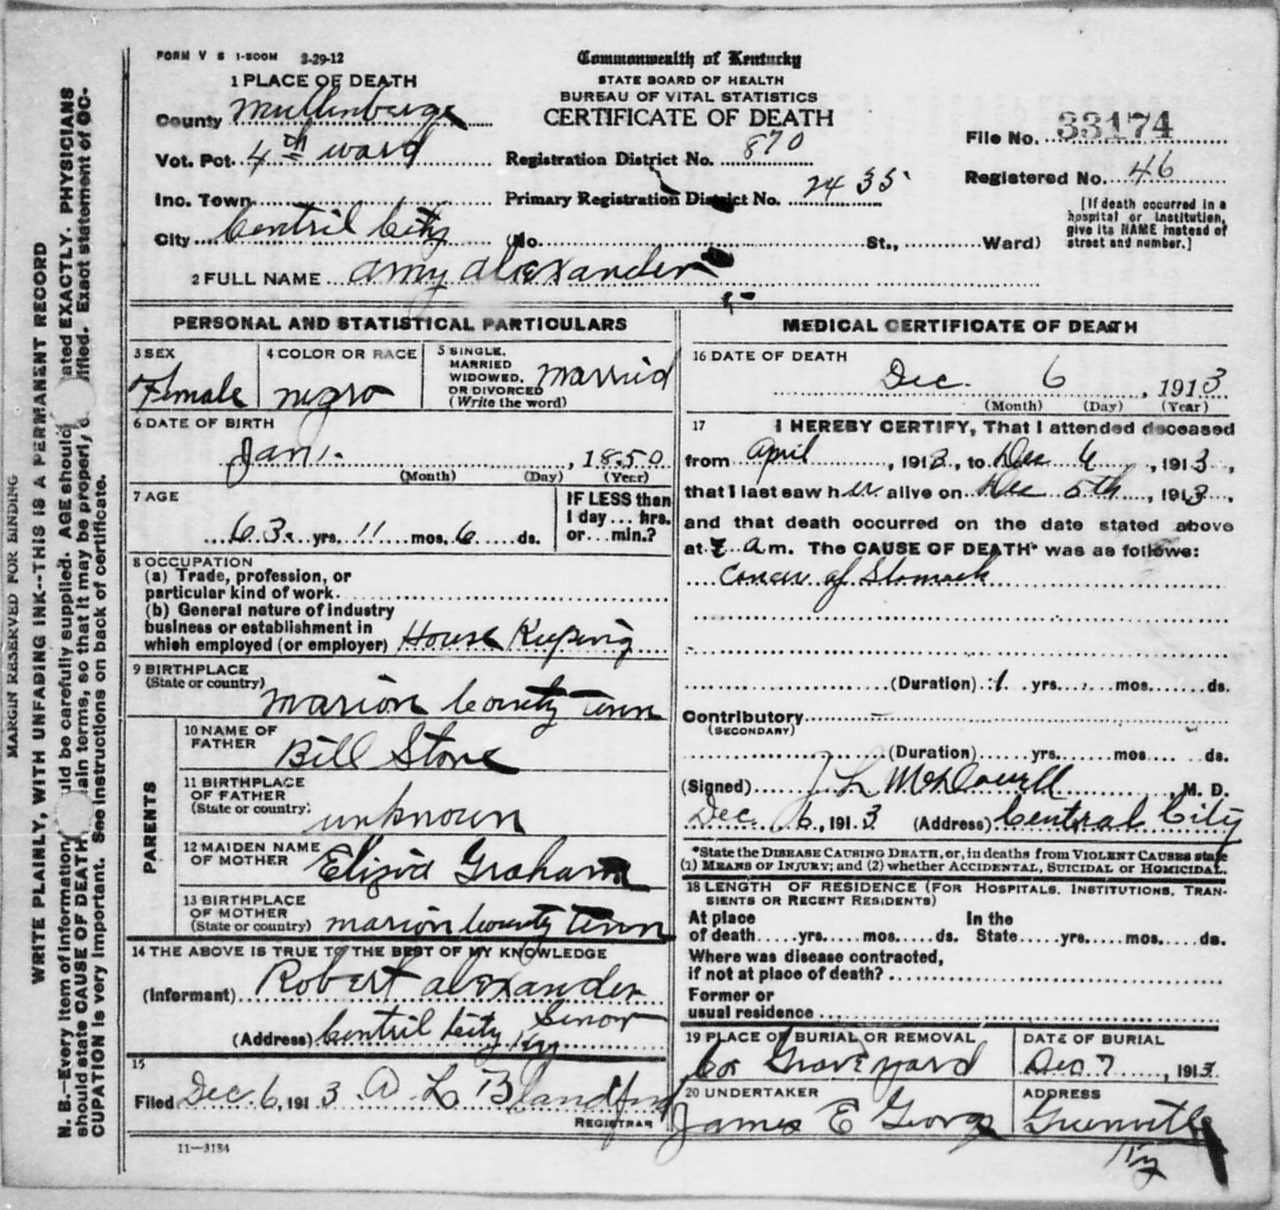 FORM V S 1-500M 3-29-12
Commonwealth of Kentucky
STATE BOARD OF HEALTH
BUREAU OF VITAL STATISTICS
CERTIFICATE OF DEATH
1 PLACE OF DEATH
County Muhlenberge
Vot. Pct. 4th ward
Inc. Town
City Centril City
Registration District No. 870
Primary Registration District No. 2435
No. St., Ward)
File No. 33174
Registered No. 46
[If death occurred in a
hospital or institution,
give its NAME instead of
street and number.]
2 FULL NAME amy alexander
PERSONAL AND STATISTICAL PARTICULARS
3 SEX
Female
4 COLOR OR RACE
negro
5 SINGLE,
MARRIED
WIDOWED,
OR DIVORCED
(Write the word)
Married
6 DATE OF BIRTH
Jan 1. , 1850
(Month) (Day) (Year)
7 AGE
63 yrs. 11 mos. 6 ds.
IF LESS than
1 day ... hrs.
or ... min.?
8 OCCUPATION
(a) Trade, profession, or
particular kind of work
(b) General nature of industry
business or establishment in
which employed (or employer) House Keeping
9 BIRTHPLACE
(State or country)
Marion County Tenn
PARENTS
10 NAME OF
FATHER
Bill Stone
11 BIRTHPLACE
OF FATHER
(State or country)
unknown
12 MAIDEN NAME
OF MOTHER
Eliziá Graham
13 BIRTHPLACE
OF MOTHER
(State or country) marion County Tenn
14 THE ABOVE IS TRUE TO THE BEST OF MY KNOWLEDGE
(Informant) Robert alexander
Senor
(Address) Centril City Ky
15
Filed Dec. 6, 1913 A L Blandford
REGISTRAR
11-3184
MEDICAL CERTIFICATE OF DEATH
16 DATE OF DEATH
Dec. 6 , 1913
(Month) (Day) (Year)
17 I HEREBY CERTIFY, That I attended deceased
from April , 1913, to Dec 6 , 1913,
that I last saw her alive on Dec 5th , 1913,
and that death occurred on the date stated above
at 7 a m. The CAUSE OF DEATH* was as follows:
Cancer of Stomach
(Duration) 1 yrs. mos. ds.
Contributory
(SECONDARY)
(Duration) yrs. mos. ds.
(Signed) J L McDowell, M. D.
Dec 6, 1913 (Address) Central City
*State the DISEASE CAUSING DEATH, or, in deaths from VIOLENT CAUSES state
(1) MEANS OF INJURY; and (2) whether ACCIDENTAL, SUICIDAL or HOMICIDAL.
18 LENGTH OF RESIDENCE (FOR HOSPITALS, INSTITUTIONS, TRAN-
SIENTS OR RECENT RESIDENTS)
At place In the
of death yrs. mos. ds. State yrs. mos. ds.
Where was disease contracted,
if not at place of death?
Former or
usual residence
19 PLACE OF BURIAL OR REMOVAL
Co Graveyard
DATE OF BURIAL
Dec 7 , 1913
20 UNDERTAKER
James E George
ADDRESS
Greenville
Ky
MARGIN RESERVED FOR BINDING
WRITE PLAINLY, WITH UNFADING INK--THIS IS A PERMANENT RECORD
N. B.--Every item of information uld be carefully supplied. AGE should ated EXACTLY. PHYSICIANS
should state CAUSE OF DEATH ain terms, so that it may be properly c ified. Exact statement of OC-
CUPATION is very important. See instructions on back of certificate.